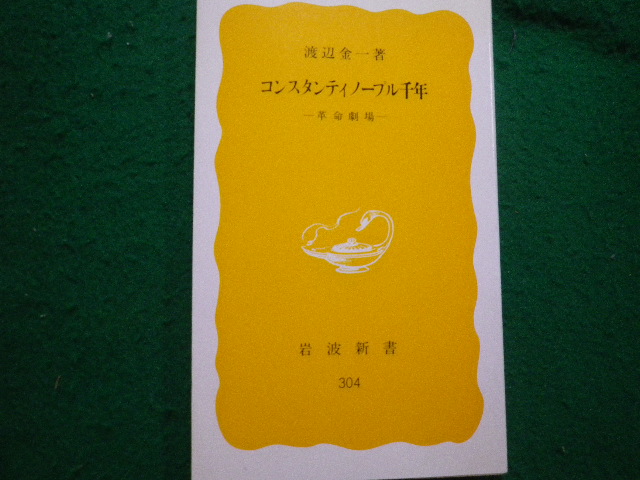 渡辺金一著
コンスタンティノープル千年
―革命劇場―
岩波新書
304